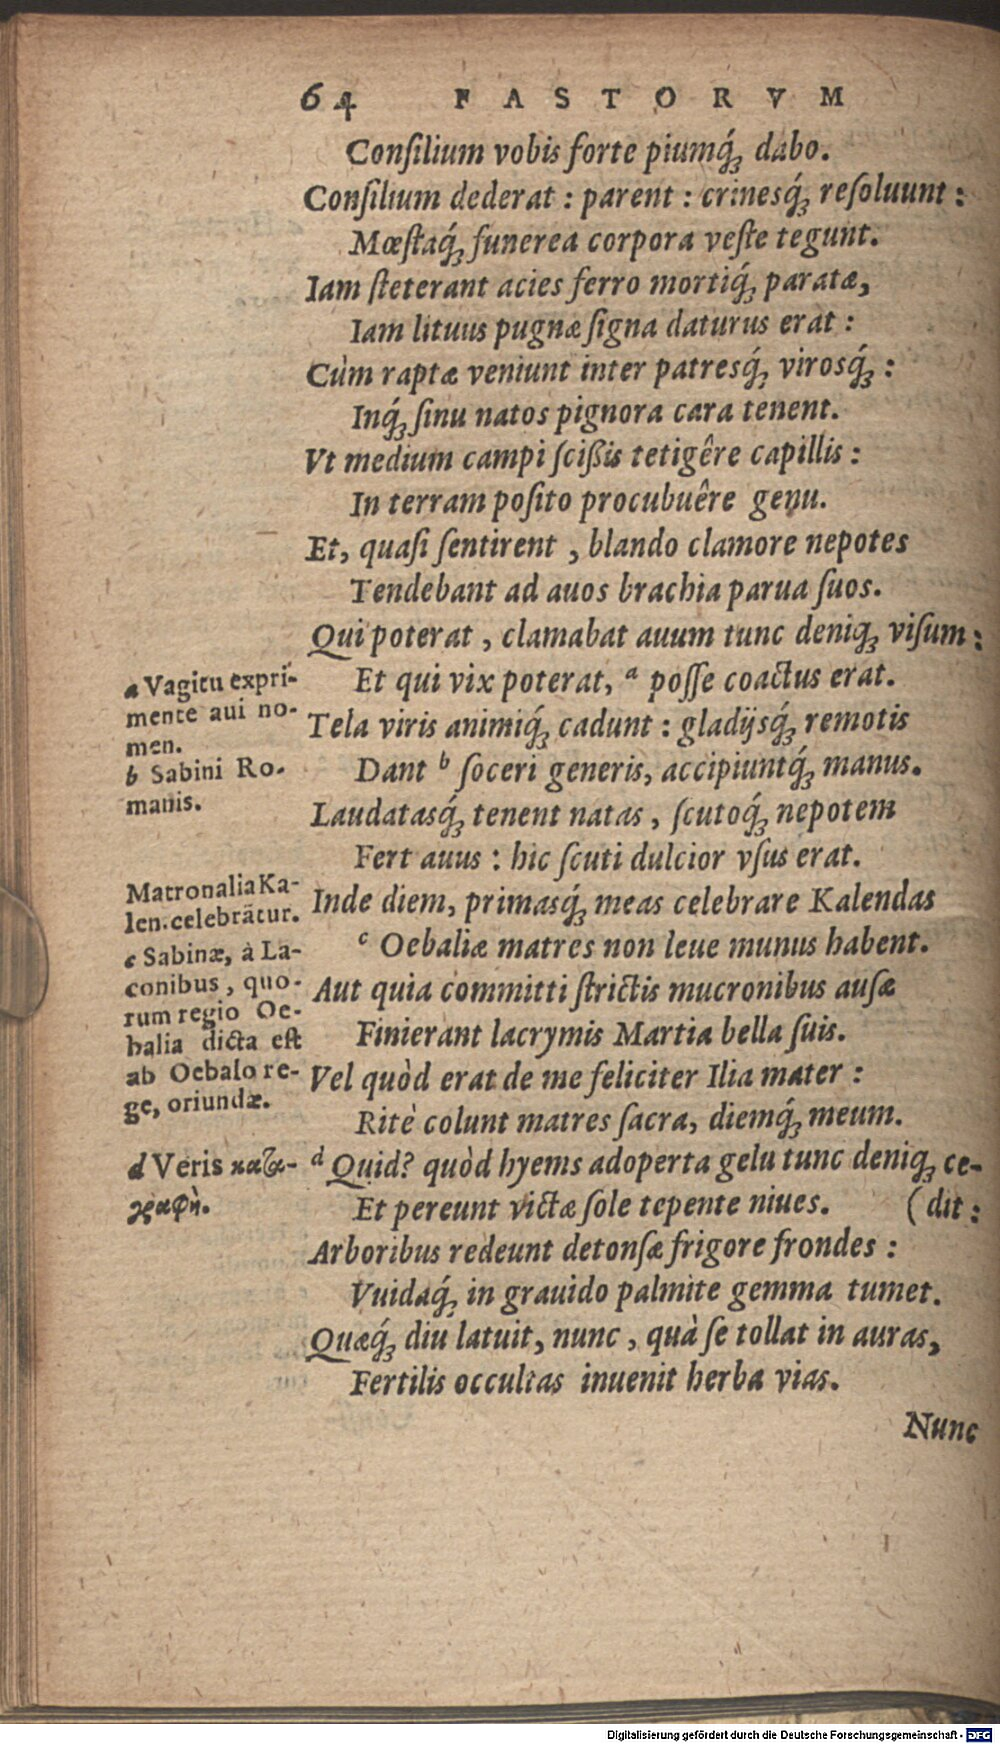 64 FASTORVM
Conſilium vobis forte piumq́; dabo.
Conſilium dederat : parent : crinesq́; reſoluunt :
Mœſtaq́; funerea corpora veſte tegunt.
Iam ſteterant acies ferro mortiq́; paratæ,
Iam lituus pugnæ ſigna daturus erat :
Cùm raptæ veniunt inter patresq́; virosq́; :
Inq́; ſinu natos pignora cara tenent.
Vt medium campi ſciſsis tetigêre capillis :
In terram poſito procubuêre genu.
Et, quaſi ſentirent , blando clamore nepotes
Tendebant ad auos brachia parua ſuos.
Qui poterat , clamabat auum tunc deniq; viſum :
Et qui vix poterat, a poſſe coactus erat.
Tela viris animiq́; cadunt : gladijsq́; remotis
Dant b ſoceri generis, accipiuntq́; manus.
Laudatasq́; tenent natas , ſcutoq́; nepotem
Fert auus : hic ſcuti dulcior vſus erat.
Inde diem, primasq́; meas celebrare Kalendas
c Oebaliæ matres non leue munus habent.
Aut quia committi ſtrictis mucronibus auſæ
Finierant lacrymis Martia bella ſuis.
Vel quòd erat de me feliciter Ilia mater :
Ritè colunt matres ſacra, diemq́; meum.
d Quid? quòd hyems adoperta gelu tunc deniq; ce-
Et pereunt victæ ſole tepente niues. (dit :
Arboribus redeunt detonſæ frigore frondes :
Vuidaq́; in grauido palmite gemma tumet.
Quæq́; diu latuit, nunc , quà ſe tollat in auras,
Fertilis occultas inuenit herba vias.
Nunc
a Vagitu expri-
mente aui no-
men.
b Sabini Ro-
manis.
Matronalia Ka-
len. celebrātur.
c Sabinæ, à La-
conibus , quo-
rum regio Oe-
balia dicta eſt
ab Oebalo re-
ge, oriundæ.
d Veris κατα-
γραφή.
Digitalisierung gefördert durch die Deutsche Forschungsgemeinschaft - DFG